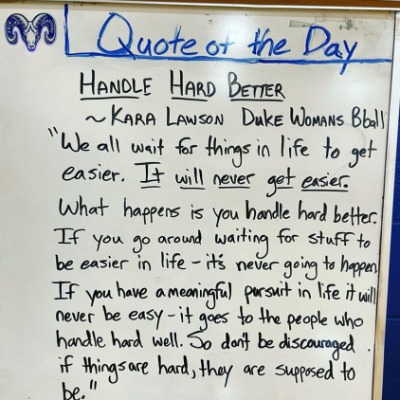 Quote of the Day
HANDLE HARD BETTER
~ KARA LAWSON DUKE WOMANS Bball
"We all wait for things in life to get
easier. It will never get easier.
What happens is you handle hard better.
If you go around waiting for stuff to
be easier in life - it's never going to happen
If you have a meaningful pursuit in life it will
never be easy - it goes to the people who
handle hard well. So don't be discouraged
if things are hard, they are supposed to
be."